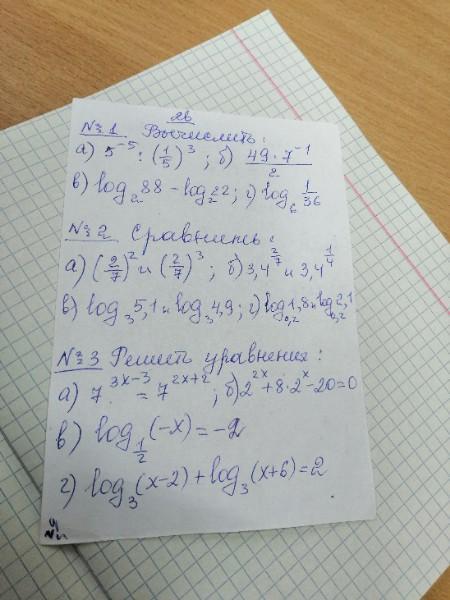 2в
№1 Вычислить:
а) 5⁻⁵ : (1/5)³ ; б) 49·7⁻¹/2
в) log₂88 - log₂22; г) log₆ 1/36
№2 Сравнить:
а) (2/7)² и (2/7)³ ; б) 3,4^(2/7) и 3,4^(1/4)
в) log₃5,1 и log₃4,9; г) log₀,₂1,8 и log₀,₂2,1
№3 Решить уравнения:
а) 7^(3x-3) = 7^(2x+2) ; б) 2^(2x) + 8·2^x - 20 = 0
в) log_(1/2)(-x) = -2
г) log₃(x-2) + log₃(x+6) = 2